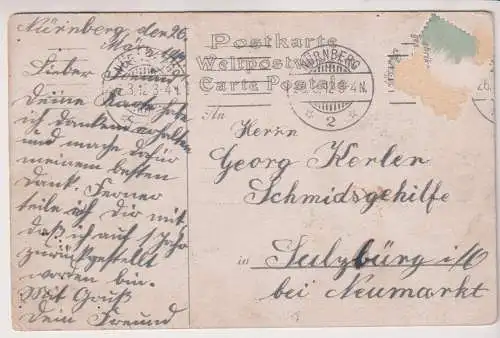 Nürnberg, den 26.
März 1912
Lieber
Deine Karte habe
ich dankend erhalten
und mache dafür
meinem besten
Dank. Ferner
teile ich Dir mit
daß ich auf 1 Jahr
zurückgestellt
worden bin.
Mit Gruß
Dein Freund
Postkarte
Weltpostverein
Carte Postale
NÜRNBERG
3.12.3-4N.
2
An
Herrn
Georg Kerlen
Schmidsgehilfe
in Sulzbürg i/O
bei Neumarkt